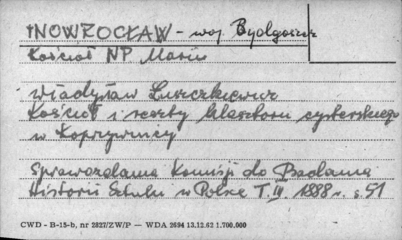 INOWROCŁAW - woj. Bydgoszcz
Kościół NP Marii
Władysław Łuszczkiewicz
Kościół i reszty klasztoru cysterskiego
w Koprzywnicy
Sprawozdania Komisji do Badania
Historii Sztuki w Polsce T. III. 1888 r. s. 51
CWD - B-15-b, nr 2827/ZW/P — WDA 2694 13.12.62 1.700.000